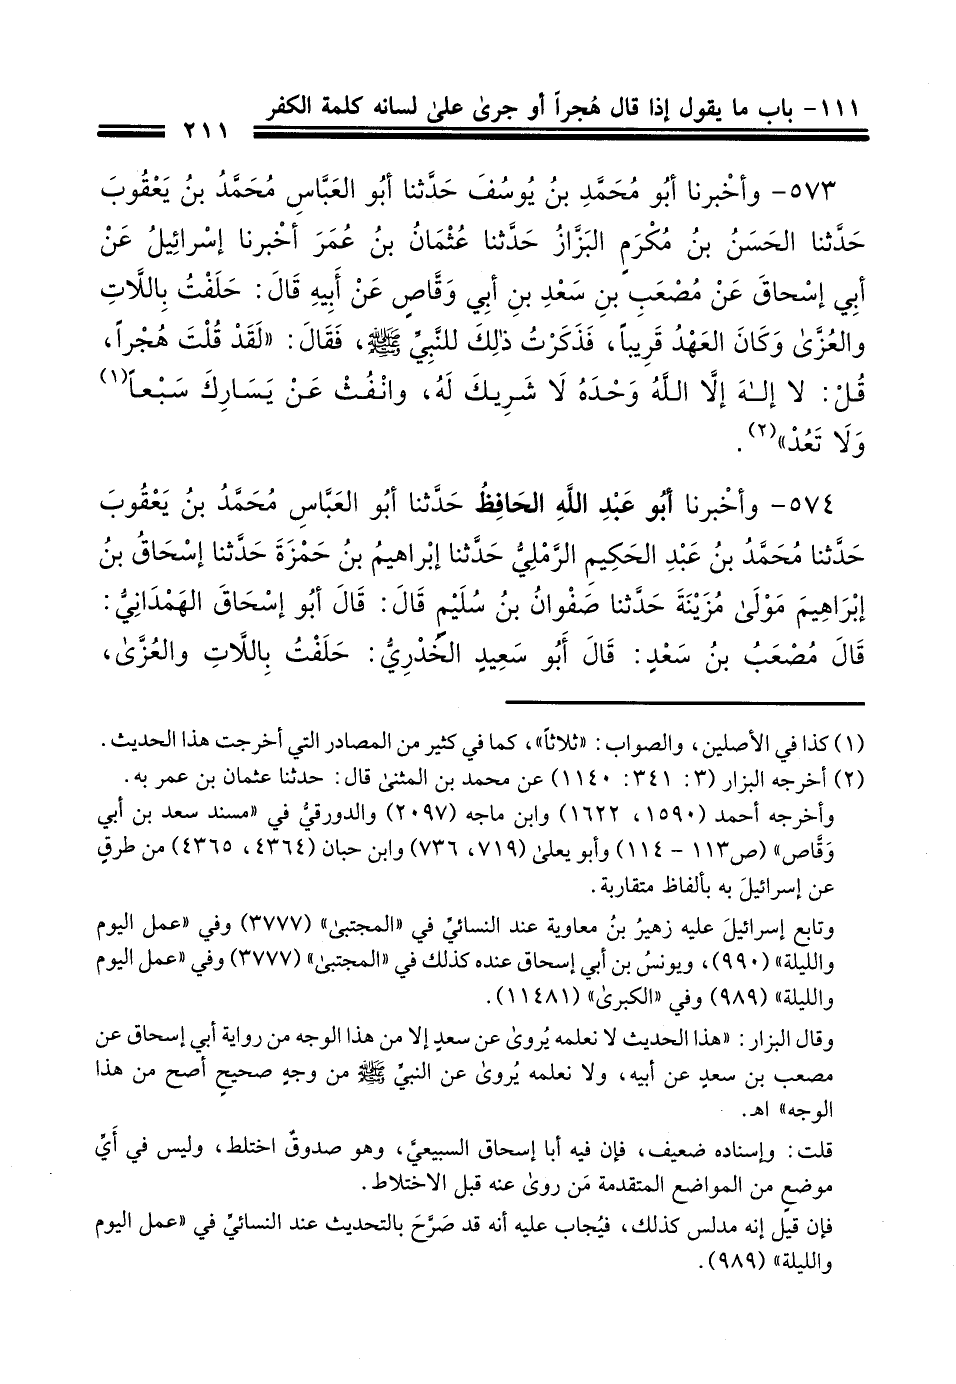 ١١١- باب ما يقول إذا قال هُجراً أو جرىٰ علىٰ لسانه كلمة الكفر
٢١١
٥٧٣- وأخْبرنا أبُو مُحَمَّدِ بنُ يُوسُفَ حَدَّثنا أبُو العَبَّاسِ مُحَمَّدُ بنُ يَعْقُوبَ
حَدَّثنا الحَسَنُ بنُ مُكْرَمٍ البَزَّازُ حَدَّثنا عُثْمَانُ بنُ عُمَرَ أخْبرنا إسْرائيلُ عَنْ
أبي إسْحاقَ عَنْ مُصْعَبِ بنِ سَعْدِ بنِ أبي وَقَّاصٍ عَنْ أَبِيهِ قَالَ: حَلَفْتُ بِاللَّاتِ
والعُزَّىٰ وَكَانَ العَهْدُ قَرِيباً، فَذَكَرْتُ ذٰلِكَ للنَّبِيِّ ﷺ، فَقَالَ: «لَقَدْ قُلْتَ هُجْراً،
قُلْ: لا إلـٰهَ إلَّا اللَّهُ وَحْدَهُ لَا شَرِيكَ لَهُ، وانْفُثْ عَنْ يَسَارِكَ سَبْعاً(١)
وَلَا تَعُدْ»(٢).
٥٧٤- وأخْبرنا أبُو عَبْدِ اللَّهِ الحَافِظُ حَدَّثنا أبُو العَبَّاسِ مُحَمَّدُ بنُ يَعْقُوبَ
حَدَّثنا مُحَمَّدُ بنُ عَبْدِ الحَكِيمِ الرَّمْليُّ حَدَّثنا إبْراهيمُ بنُ حَمْزَةَ حَدَّثنا إسْحَاقُ بنُ
إبْرَاهِيمَ مَوْلَىٰ مُزَيْنَةَ حَدَّثنا صَفْوانُ بنُ سُلَيْمٍ قَالَ: قَالَ أبُو إسْحَاقَ الهَمْدَانِيُّ:
قَالَ مُصْعَبُ بنُ سَعْدٍ: قَالَ أَبُو سَعِيدٍ الخُدْرِيُّ: حَلَفْتُ بِاللَّاتِ والعُزَّىٰ،
(١) كذا في الأصلين، والصواب: «ثلاثاً»، كما في كثير من المصادر التي أخرجت هذا الحديث.
(٢) أخرجه البزار (٣: ٣٤١: ١١٤٠) عن محمد بن المثنىٰ قال: حدثنا عثمان بن عمر به.
وأخرجه أحمد (١٥٩٠، ١٦٢٢) وابن ماجه (٢٠٩٧) والدورقيُّ في «مسند سعد بن أبي
وَقَّاص» (ص١١٣ - ١١٤) وأبو يعلىٰ (٧١٩، ٧٣٦) وابن حبان (٤٣٦٤، ٤٣٦٥) من طرقٍ
عن إسرائيلَ به بألفاظ متقاربة.
وتابع إسرائيلَ عليه زهيرُ بنُ معاوية عند النسائيِّ في «المجتبىٰ» (٣٧٧٧) وفي «عمل اليوم
والليلة» (٩٩٠)، ويونسُ بن أبي إسحاق عنده كذلك في «المجتبىٰ» (٣٧٧٧) وفي «عمل اليوم
والليلة» (٩٨٩) وفي «الكبرىٰ» (١١٤٨١).
وقال البزار: «هذا الحديث لا نعلمه يُروىٰ عن سعدٍ إلا من هذا الوجه من رواية أبي إسحاق عن
مصعب بن سعدٍ عن أبيه، ولا نعلمه يُروىٰ عن النبيِّ ﷺ من وجهٍ صحيحٍ أصح من هذا
الوجه» اهـ.
قلت: وإسناده ضعيف، فإن فيه أبا إسحاق السبيعيَّ، وهو صدوقٌ اختلط، وليس في أَيِّ
موضعٍ من المواضع المتقدمة مَن روىٰ عنه قبل الاختلاط.
فإن قيل إنه مدلس كذلك، فيُجاب عليه أنه قد صَرَّحَ بالتحديث عند النسائيِّ في «عمل اليوم
والليلة» (٩٨٩).